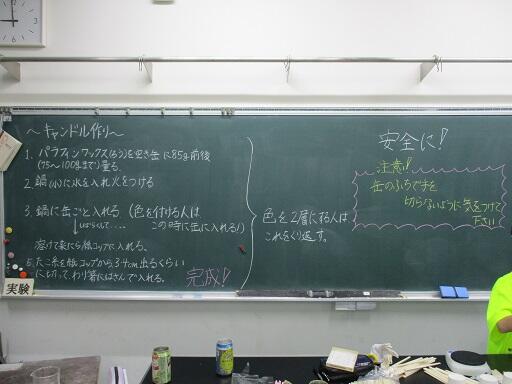 ～キャンドル作り～
1. パラフィンワックス(ろう)を空き缶に85g前後
(75～100gまで)量る。
2. 鍋(小)に水を入れ火をつける
3. 鍋に缶ごと入れる (色を付ける人は
この時に缶に入れる!)
しばらくして....
溶けて来たら紙コップに入れる。
5. たこ糸を紙コップから3,4cm出るくらい
に切って、わり箸にはさんで入れる。
完成!!
色を2層にする人は
これをくり返す。
安全に!
注意!!
缶のふちで手を
切らないように気をつけて
下さい
実験